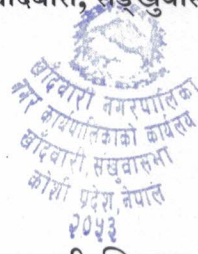 खाँदबारी नगरपालिका
नगर कार्यपालिकाको कार्यालय
खाँदबारी, संखुवासभा
कोशी प्रदेश, नेपाल
२०५३